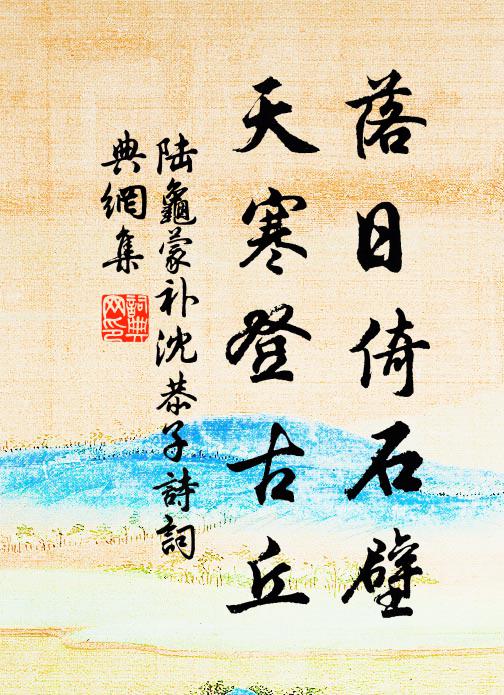 落日倚石壁
天寒登古丘
陆龜蒙补沈恭子詩詞
典網集
詞典
网印